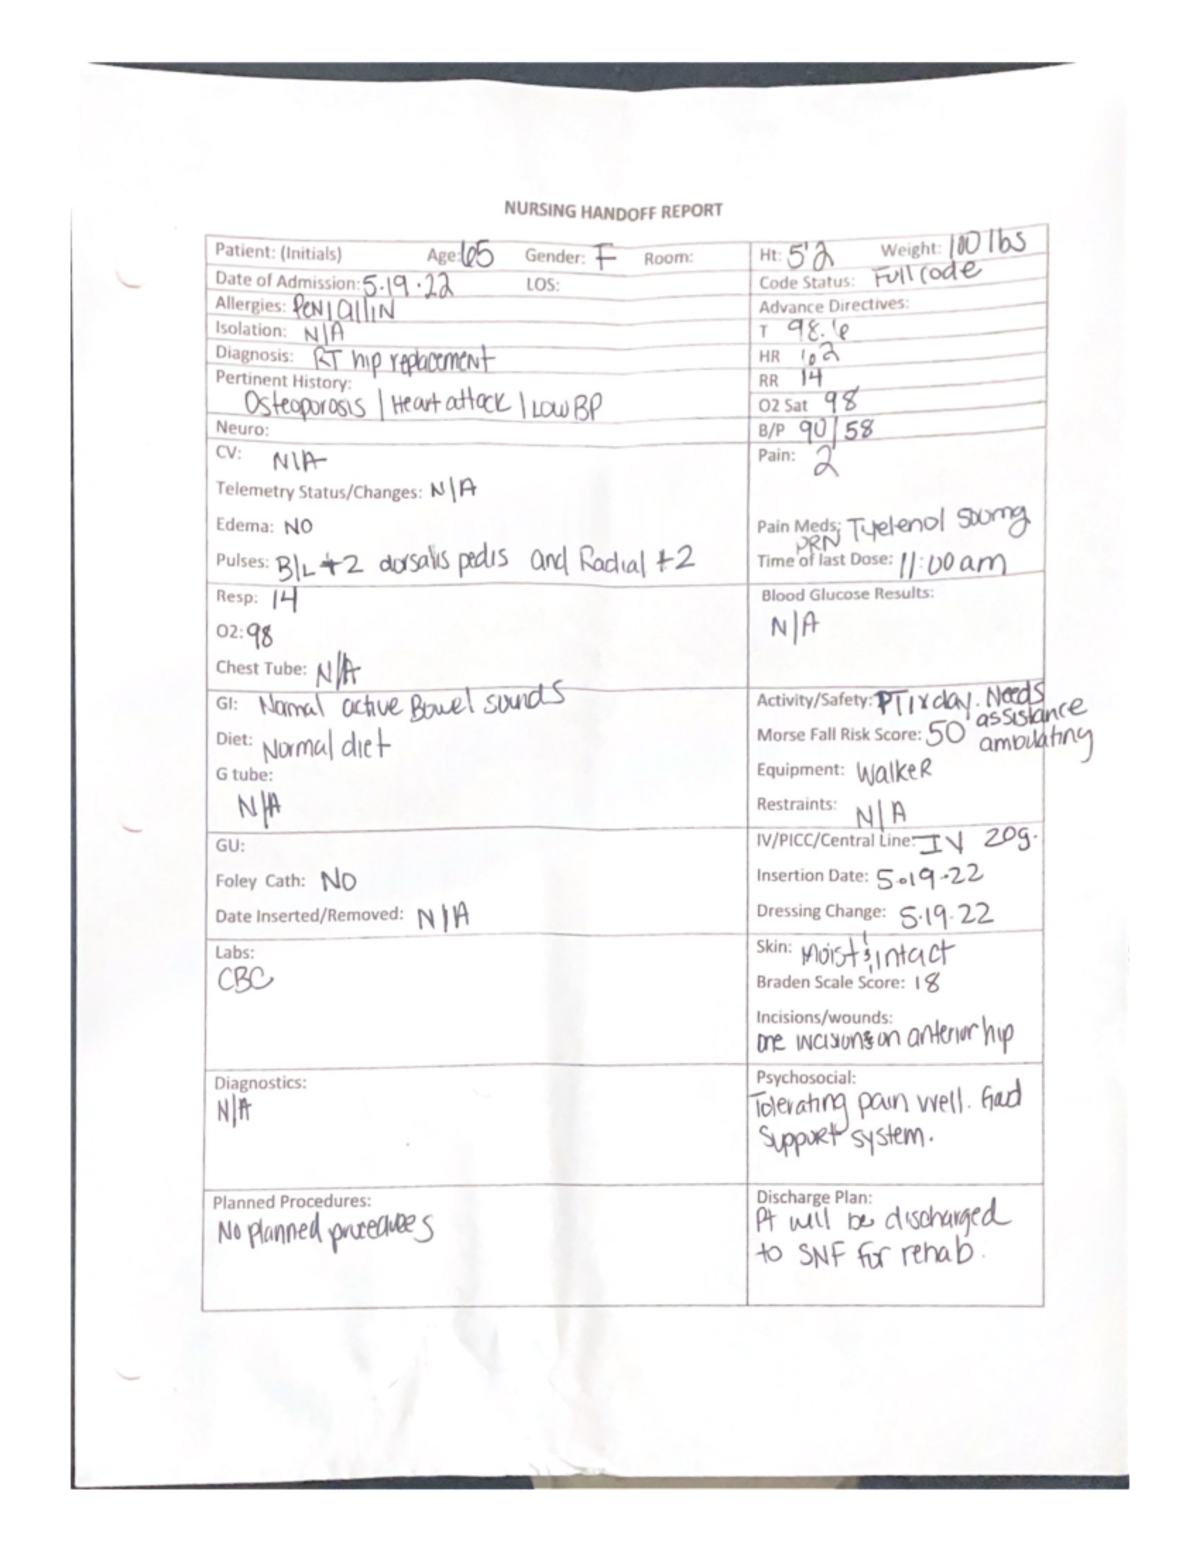 NURSING HANDOFF REPORT
Patient: (Initials) Age: 65 Gender: F Room:
Date of Admission: 5.19.22 LOS:
Allergies: PENICillIN
Isolation: N/A
Diagnosis: RT hip replacement
Pertinent History:
Osteoporosis | Heart attack | Low BP
Neuro:
CV: N/A
Telemetry Status/Changes: N/A
Edema: NO
Pulses: B/L +2 dorsalis pedis and Radial +2
Resp: 14
O2: 98
Chest Tube: N/A
GI: Normal active Bowel sounds
Diet: Normal diet
G tube:
N/A
GU:
Foley Cath: NO
Date Inserted/Removed: N/A
Labs:
CBC
Diagnostics:
N/A
Planned Procedures:
No planned procedures
Ht: 5'2 Weight: 100 lbs
Code Status: Full code
Advance Directives:
T 98.6
HR 102
RR 14
O2 Sat 98
B/P 90/58
Pain: 2
Pain Meds: Tyelenol 500mg
PRN
Time of last Dose: 11:00 am
Blood Glucose Results:
N/A
Activity/Safety: PT 1x day. Needs
assistance
Morse Fall Risk Score: 50 ambulating
Equipment: Walker
Restraints: N/A
IV/PICC/Central Line: IV 20g.
Insertion Date: 5.19.22
Dressing Change: 5.19.22
Skin: Moist & intact
Braden Scale Score: 18
Incisions/wounds:
one incisions on anterior hip
Psychosocial:
Tolerating pain well. Good
Support system.
Discharge Plan:
Pt will be discharged
to SNF for rehab.